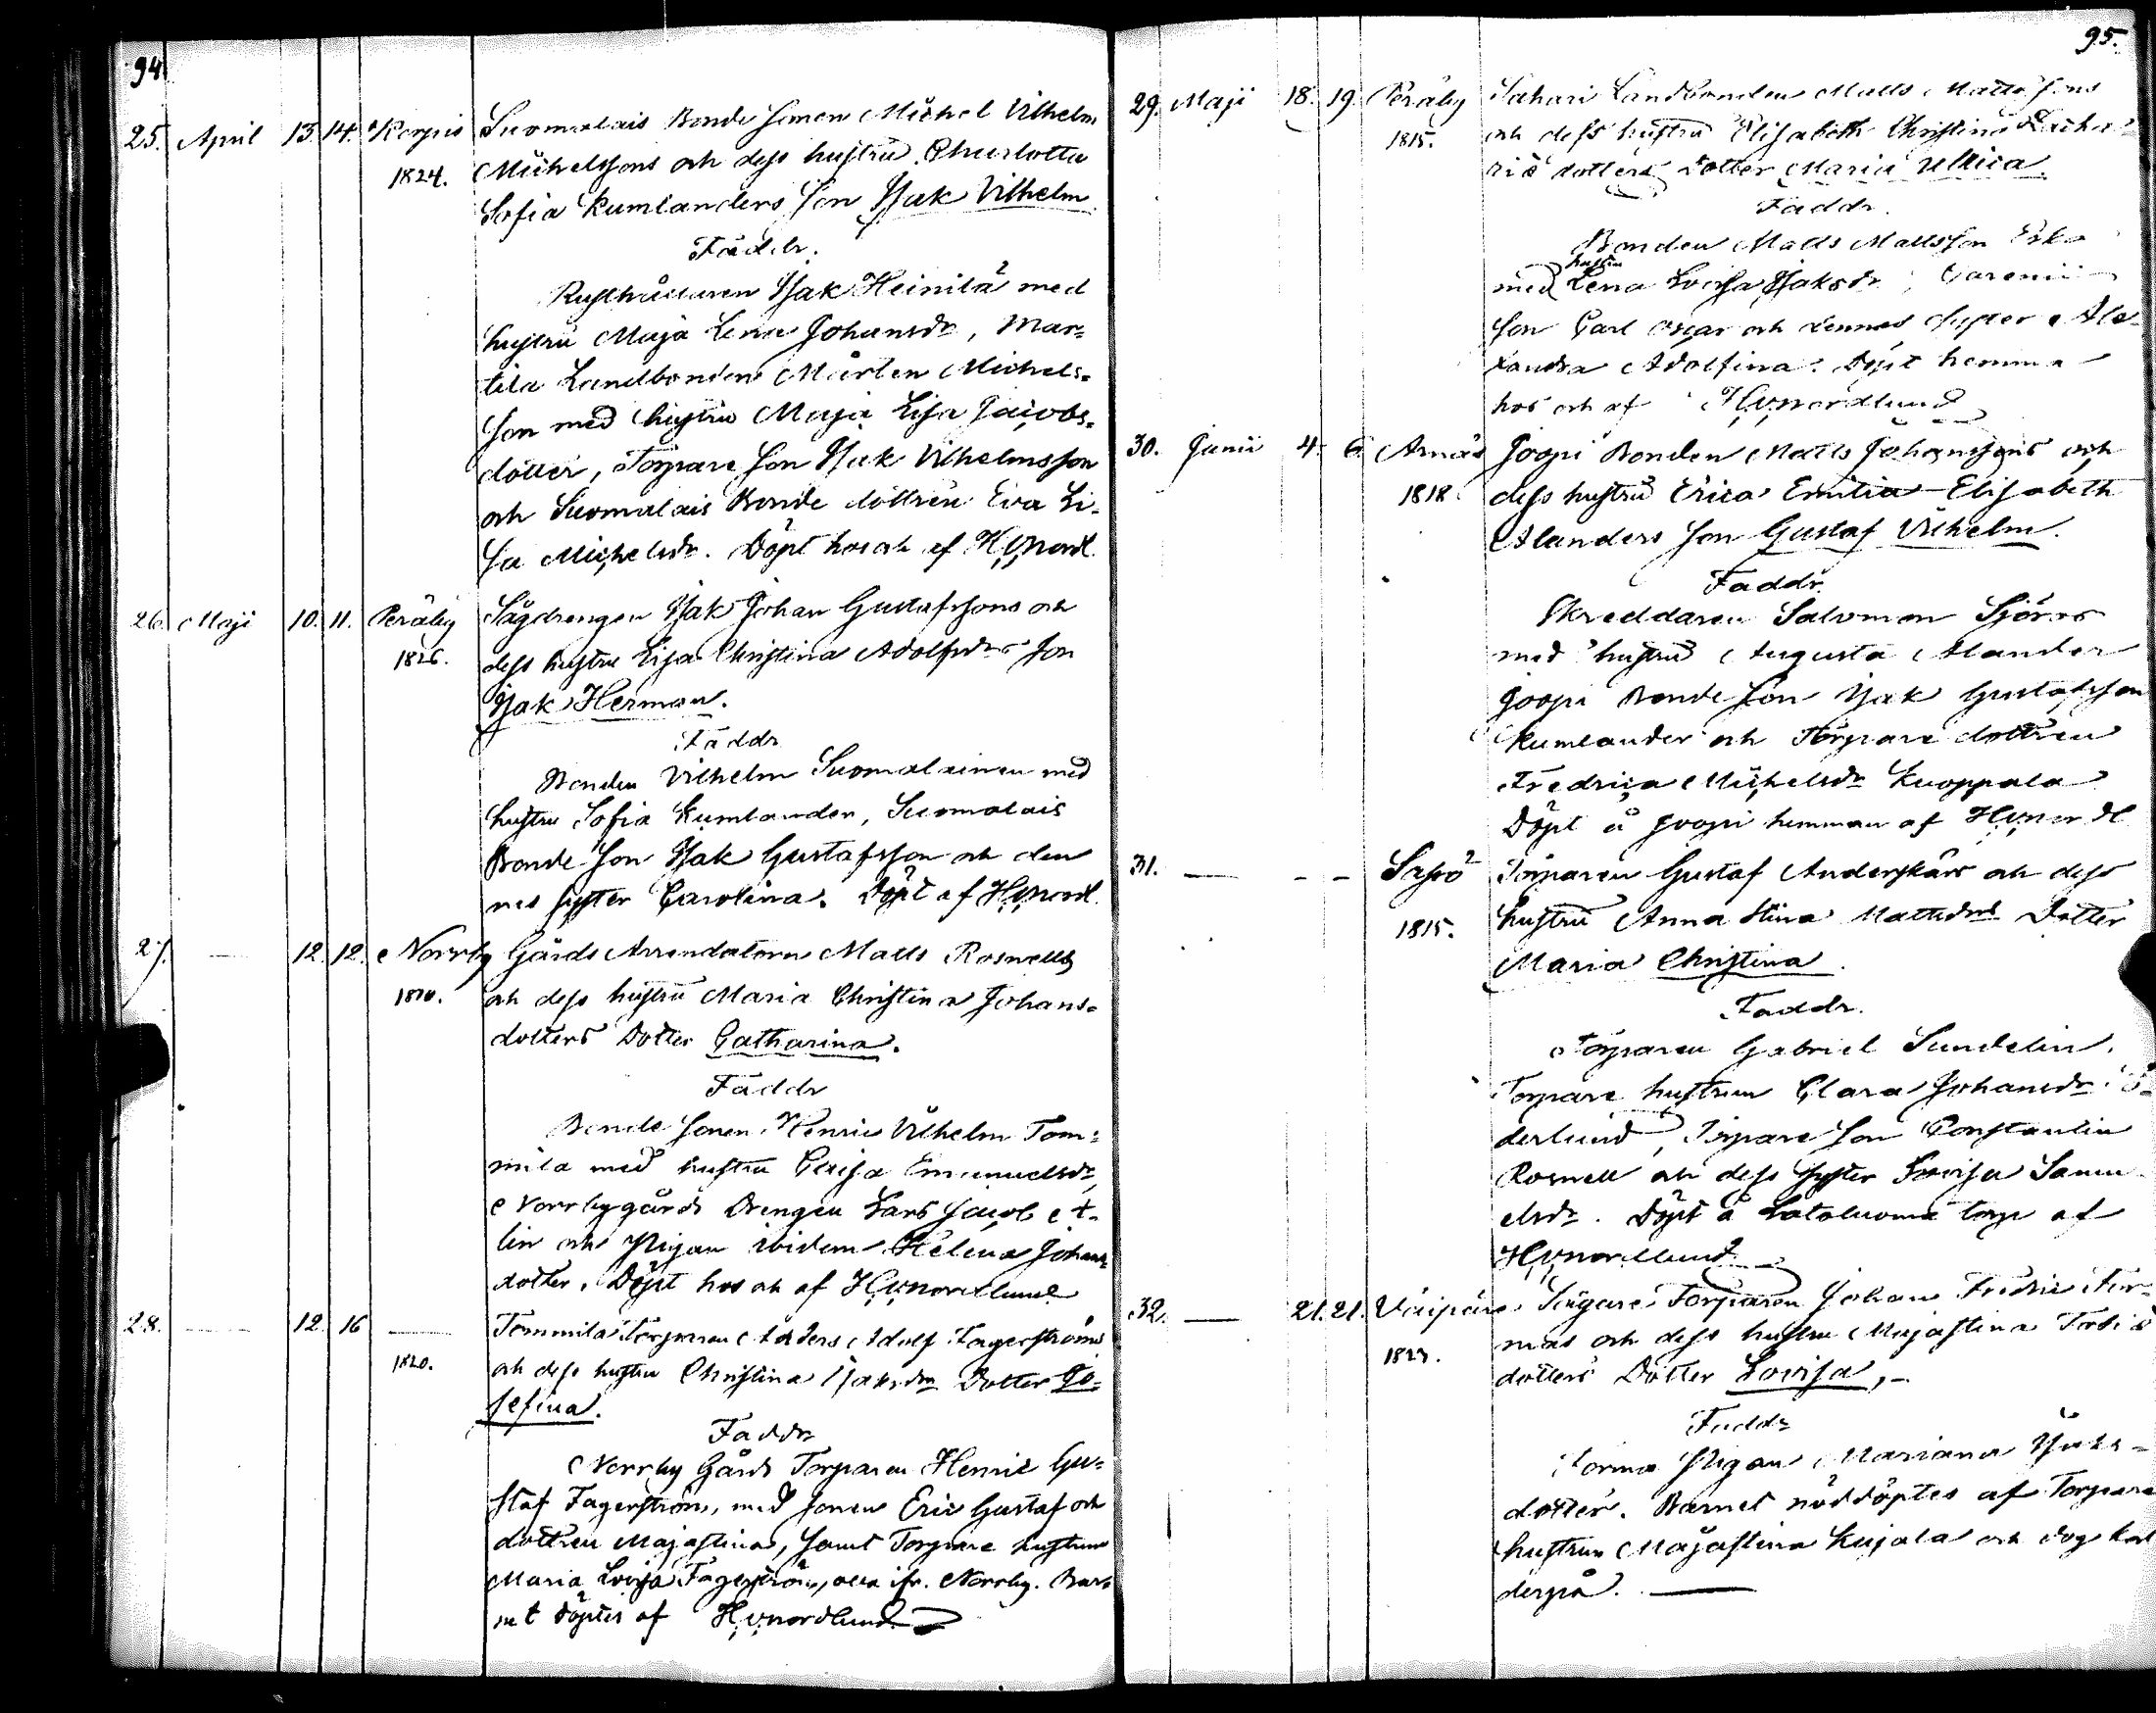 94
25. April 13. 14. Korpis Suomalais Bonde Sonen Michel Vilhelm
1824. Michelssons och dess hustru Charlotta
Sofia Kumlanders Son Isak Vilhelm
Faddr.
Rusthållaren Isak Heinilä med
hustru Maja Lena Johansdr, Mar=
tila Landbonden Mårten Michels=
son med hustru Maja Lisa Jacobs=
dotter, Torpare Son Isak Vilhelmsson
och Suomalais Bonde dottren Eva Li=
sa Michelsdr. Döpt hos och af HVNordl.
26. Maji 10. 11. Peräby Sågdrengen Isak Johan Gustafssons och
1826. dess hustru Lisa Christina Adolfsdrs Son
Isak Herman.
Faddr
Bonden Vilhelm Suomalainen med
hustru Sofia Kumlander, Suomalais
Bonde Son Isak Gustafsson och den
nes syster Carolina. Döpt af HVNordl.
27. — 12. 12. Norrby Gårds Arrendatorn Matts Rosnells
1810. och dess hustru Maria Christina Johans=
dotters Dotter Catharina.
Faddr
Bonde Sonen Henric Vilhelm Tom=
mila med hustru Caisa Emanuelsdr,
Norrbygårds Drengen Lars Jacob
lin och Pigan ibidem Helena Johans
dotter. Döpt hos och af HVNordlund
28. — 12. 16 — Tommila Torparen Anders Adolf Fagerströms
1820. och dess hustru Christina Isaksdrs Dotter Jo=
sefina.
Faddr
Norrby Gårds Torparen Henric Gu=
staf Fagerström, med Sonen Eric Gustaf och
dottren Majastina, samt Torpare hustrun
Maria Lovisa Fagerström, alla ifr. Norrby. Bar
net döptes af HVNordlund
95.
29. Maji 18. 19. Peräby Sahari Landbonden Matts Mattssons
1815. och dess hustru Elisabeth Christina Zacha=
riæ dotters Dotter Maria Ulrica.
Faddr.
Bonden Matts Mattsson Erko
hustru
med Lena Lovisa Isaksdr,
Son Carl Oscar och dennes syster Ale=
xandra Adolfina. Döpt hemma
hos och af HVNordlund
30. Junii 4. 6. Arnäs Joopi Bonden Matts Johanssons och
1818. dess hustru Erica Emilia Elisabeth
Alanders Son Gustaf Vilhelm.
Faddr.
Skreddaren Salomon Sjöroos
med hustru Augusta Alander
Joopi Bonde Son Isak Gustafsson
Kumlander och Torpare dottren
Fredrica Michelsdr Kuoppala
Döpt å Joopi hemman af HVNordl
31. — – – Saso Torparen Gustaf Anderskärs och dess
1815. hustru Anna Stina Mattsdrs Dotter
Maria Christina.
Faddr.
Torparen Gabriel Sundelin,
Torpare hustrun Clara Johansdr Sö=
derlund, Torpare Son Constantin
Rosnell och dess syster Lovisa Samu
elsdr. Döpt å Latoluoma torp af
HVNordlund
32. — 21. 21. Vaipäre Torparen Johan Fredric Tor=
1823. och dess hustru Majastina Tobiæ
dotters Dotter Lovisa,–
Faddr
Pigan Mariana Isaks=
dotter. Barnet nöddöptes af Torpare
hustrun Majastina Kujala och dog kort
derpå. —